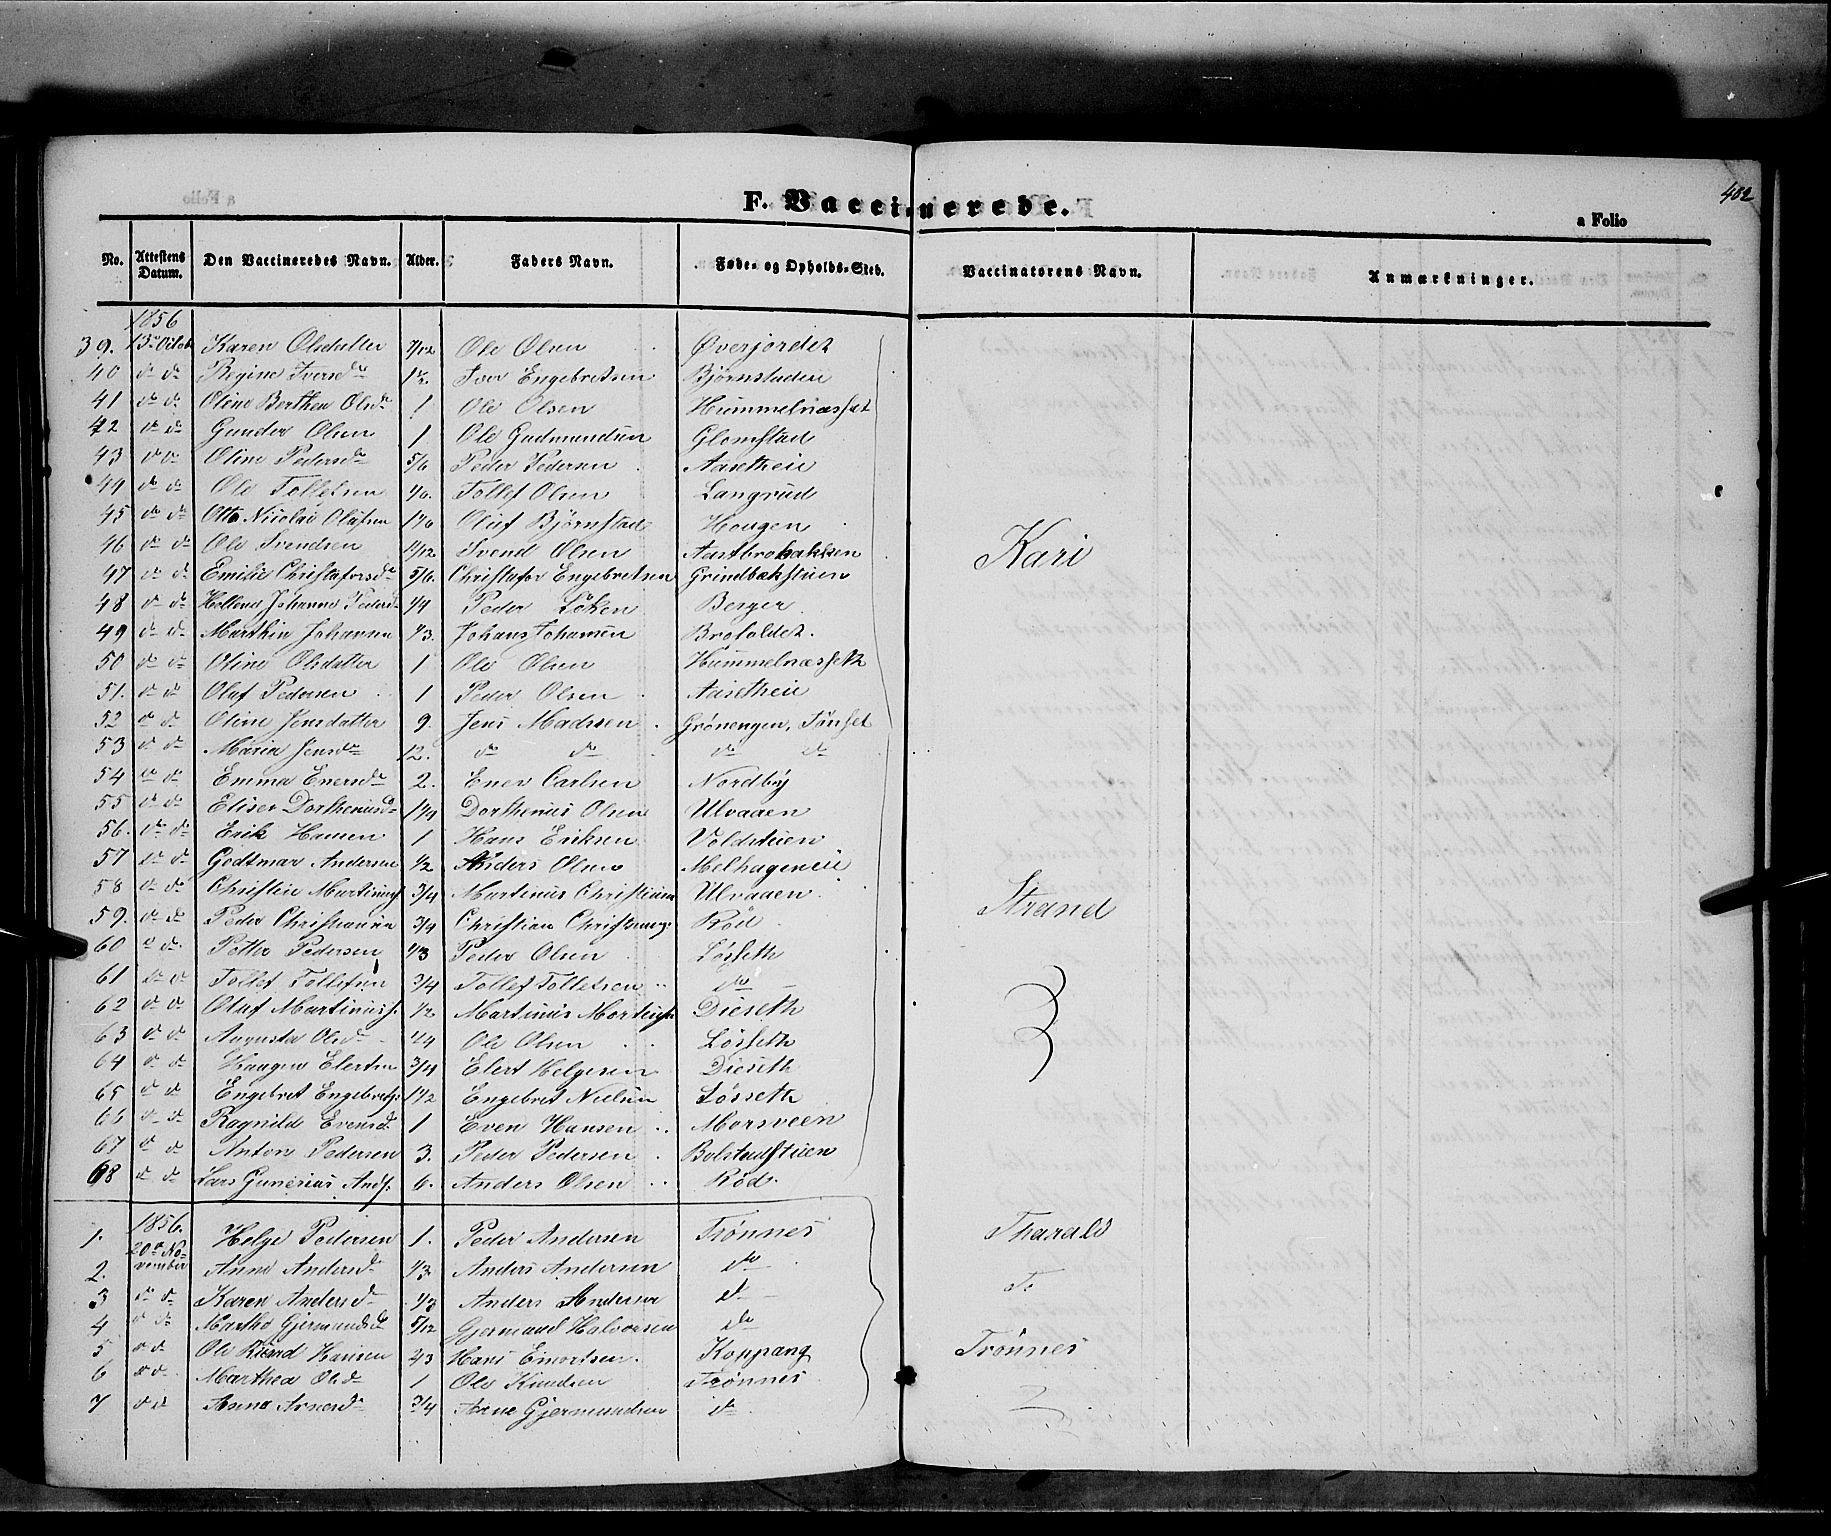 402
F. Vaccinerede.
a Folio
No. Attestens Datum. Den Vaccineredes Navn. Alder. Faders Navn. Føde- og Opholds-Sted. Vaccinatorens Navn. Anmærkninger.
1856
39. 13de Octob Karen Olsdatter 7/12 Ole Olsen Øverjordet
40 do do Regine Iversdr 1½ Iver Engebretsen Bjørnstaden
41 do do Oline Berthea Olsdr 1 Ole Olsen Hummelnæsset
42 do do Gunder Olsen 1 Ole Gudmundsen Glomstad
43 do do Oline Pedersdr 5/6 Peder Pedersen Aasetheie
44 do do Ole Tollefsen 1/6. Tollef Olsen Langrud
45 do do Otto Nicolai Olafsen 1 1/6 Oluf Bjørnstad Hougen
46 do do Ole Svendsen 11/12 Svend Olsen Aastbrobakken
47 do do Emilie Christophersdr 5/6. Christofer Engebretsen Grindbækstuen
48 do do Hellena Johanne Pedersdr 1/4 Peder Løken Berger
49 do do Marthin Johansen 1/3. Johans Johansen Brofaldet.
50 do do Oline Olsdatter 1 Ole Olsen Hummelnæsset
51. do do Oluf Pedersen 1 Peder Olsen Aasetheie
52 do do Oline Jensdatter 9. Jens Madssen Grönengen, Tönset
53 do do Maria Jensdr 12. do do do do
54 do do Emma Enersdr 2. Ener Carlsen Nordby
55 do do Eliser Dorthenusdr 1¼ Dorthenus Olsen Ulvaaen
56. do do Erik Hansen 1 Hans Eriksen Voldstuen
57 do do Godtmar Andersen 1/2 Anders Olsen Melhageneie
58 do do Christine Martinusd 3/4 Martinus Christiansen Ulvaaen
59. do do Peder Christiansen 3/4 Christian Christians. Rød
60 do do Petter Pedersen 1/3 Peder Olsen Løsseth
61 do do Tollef Tollefsen 3/4 Tollef Tollefsen do
62 do do Oluf Martinuss. 1/2 Martinus Mortens. Dieseth
63 do do Augusta Olsd 1/4 Ole Olsen Løsseth
64 do do Haagen Elertsen 3/4 Elert Helgesen Dieseth
65 do do Engebret Engebrets. 1½ Engebret Nielsen Løsseth
66 do do Ragnild Evensdr 1 Even Hansen Morsveen
67 do do Anton Pedersen 3. Peder Pedersen Bolstadstuen
68 do do Lars Gunerius Ands. 6. Anders Olsen Rød.
Kari
Strand
1856.
1. 20de November Helge Pedersen 1. Peder Andersen Trønnes Tharald
2. Anne Andersdr 1/3 Anders Andersen do T:
3 do do Karen Andersdr 1/3 Anders Andersen do
4 do do Martha Gjermundsdr 5/12 Gjermund Halvorsen do
5 do do Ole Hansen 2/3 Hans Koppang Trønnes
6 do do Marthea Olsdr 1 Ole Knudsen Trønnes
7 do do Anna Arnesdr 3/4 Arne Gjermundsen do